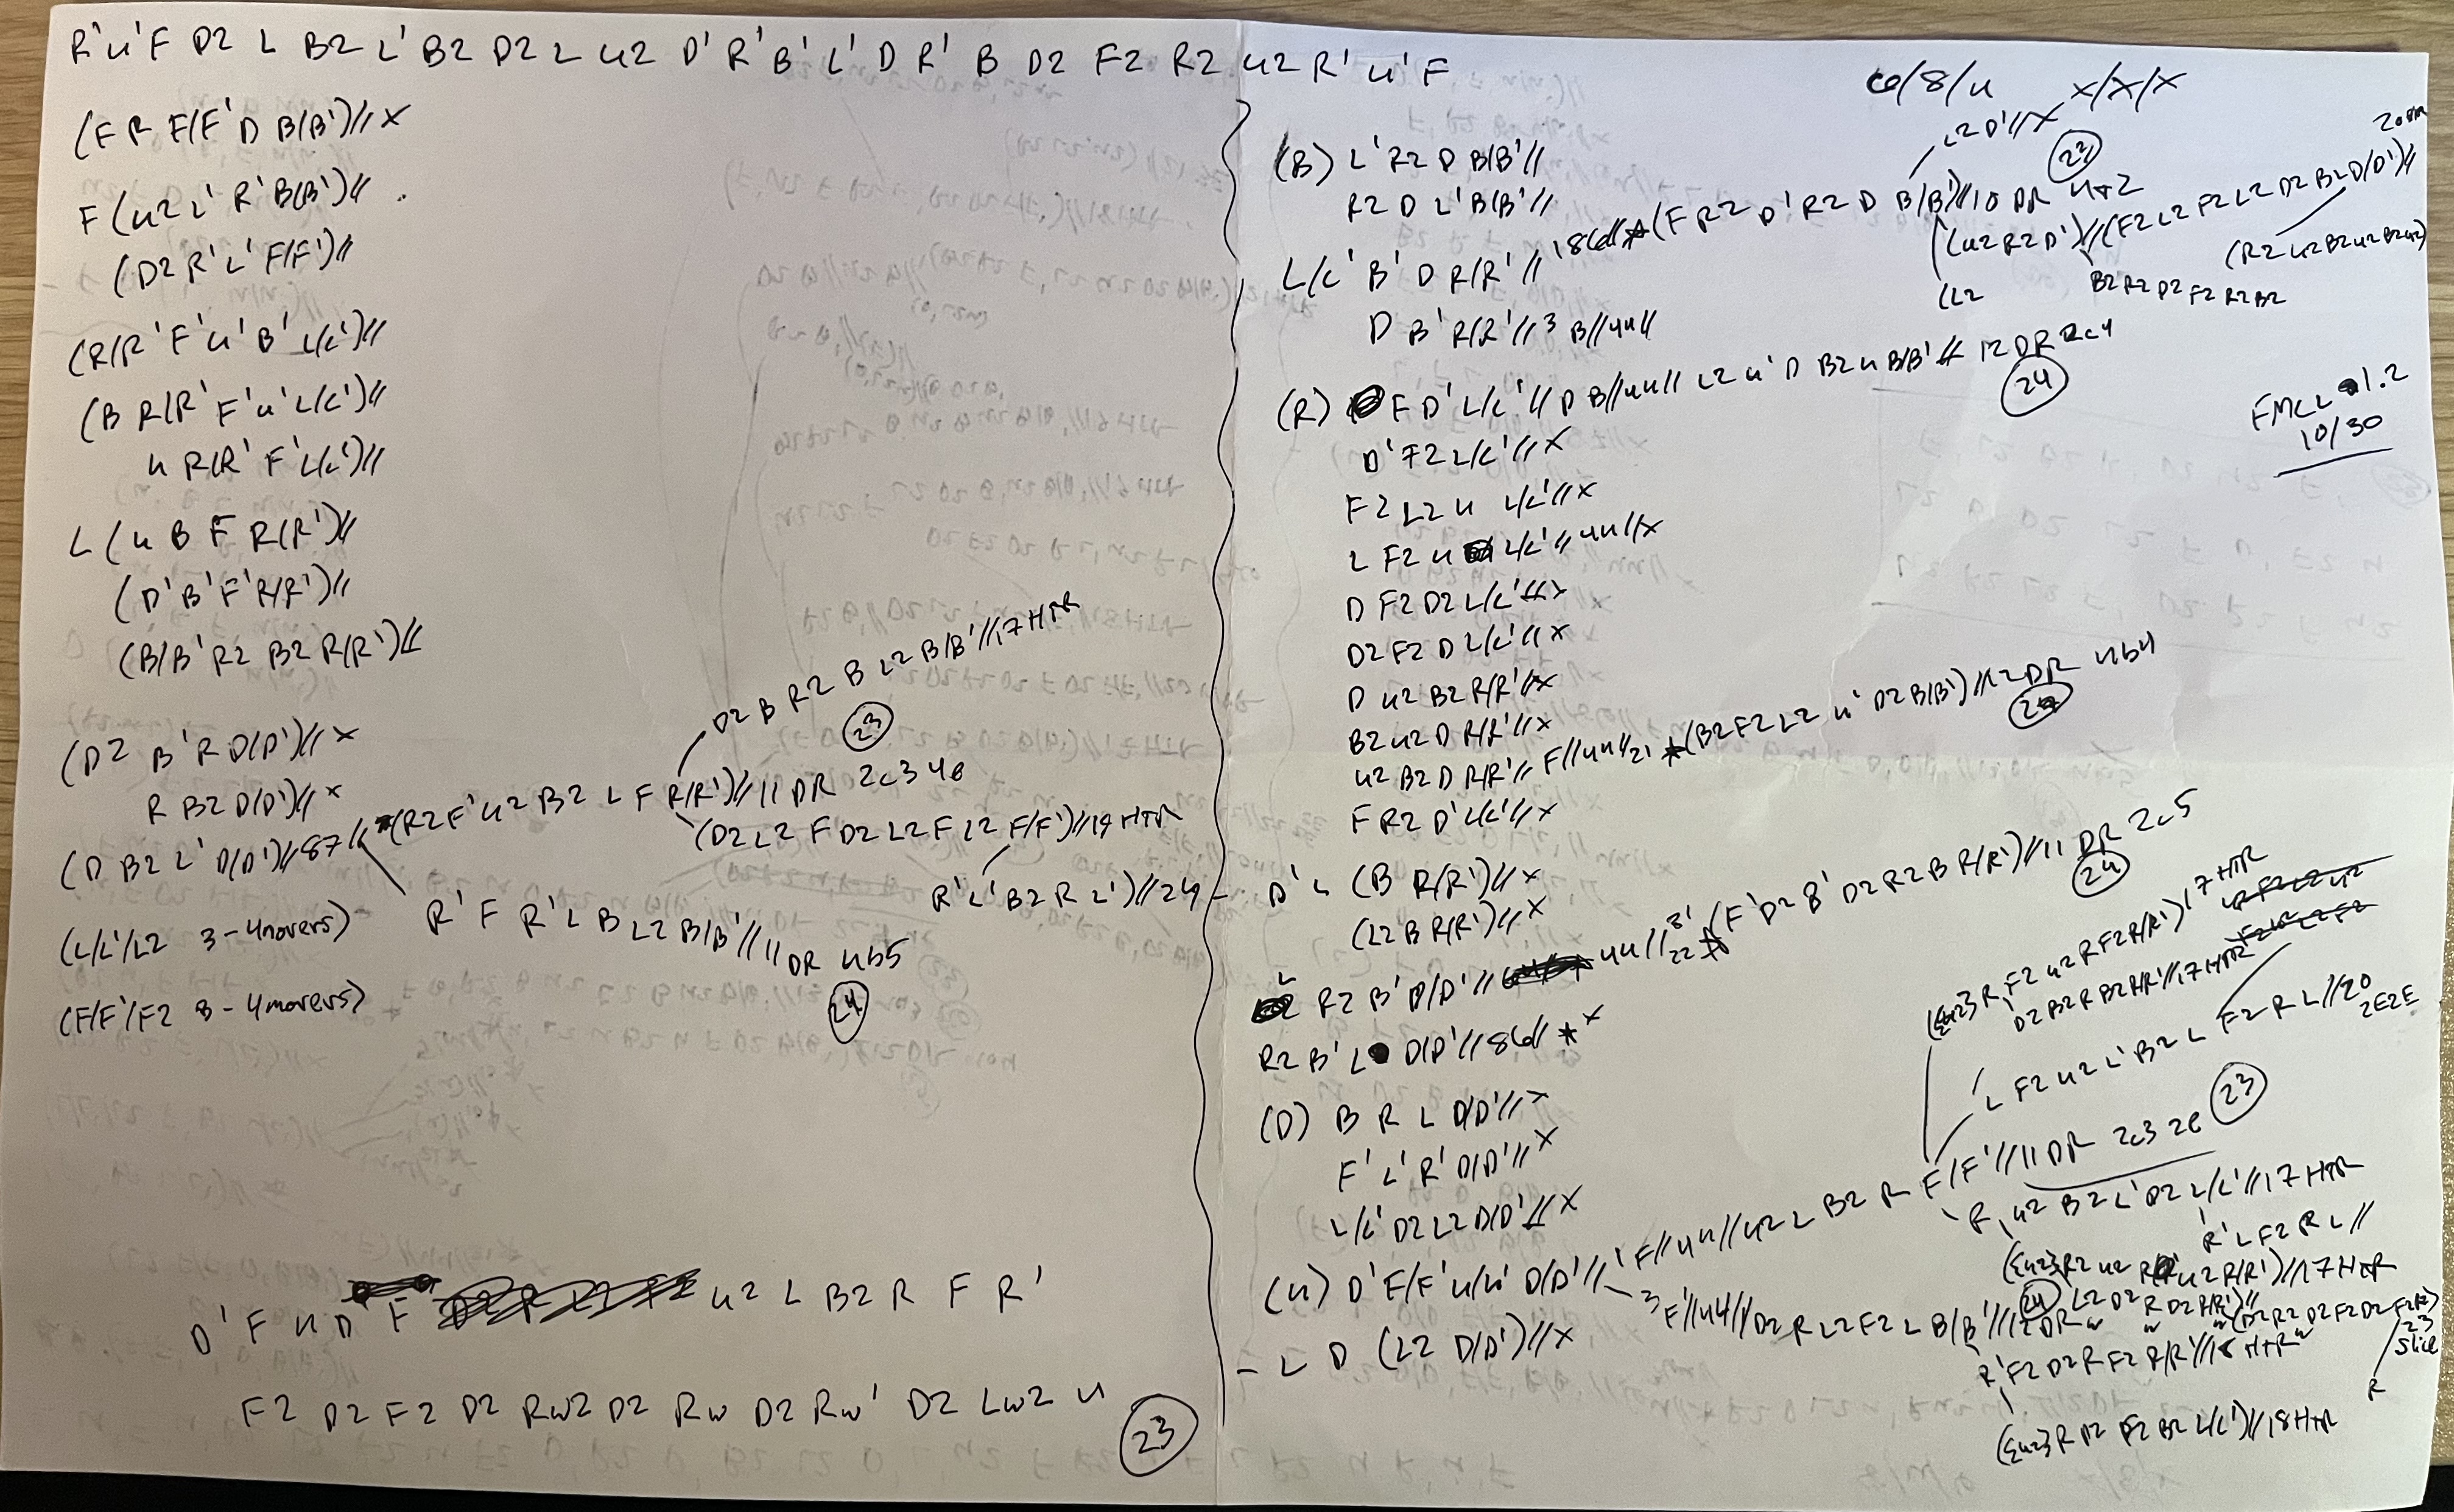 R'u'F D2 L B2 L' B2 D2 L u2 D' R' B' L' D R' B D2 F2 R2 u2 R' u' F
(F R F/F' D B(B')// x
F (u2 L' R' B(B')// .
(D2 R' L' F/F')//
(R/R' F' u' B' L/L')//
(B R/R' F' u' L/L')//
u R/R' F' L/L')//
L (u B F R(R')//
(D' B' F' R/R')//
(B/B' R2 B2 R/R')//
(D2 B' R D(D')// x
R B2 D(D')// x
(D B2 L' D(D')// 87// *(R2 F' u2 B2 L F R/R')// 11 DR 2c3 4e
D2 B R2 B L2 B/B'// 17 HTR
(23)
(D2 L2 F D2 L2 F L2 F/F')// 19 HTR
R' L' B2 R L')// 24
R' F R' L B L2 B/B'// 11 DR 4b5
(24)
(L/L'/L2 3-4movers)
(F/F'/F2 3-4movers)
D' F u D' F u2 L B2 R F R'
F2 D2 F2 D2 Rw2 D2 Rw D2 Rw' D2 Lw2 u
(23)
6/8/u x/x/x
FMCL 1.2
10/30
(B) L' R2 D B/B'//
R2 D L' B(B'//
L/L' B' D R/R'// 186d// *(F R2 D' R2 D B/B')// 10 DR 4+2
L2 D'// x
(23)
(u2 R2 D')//(F2 L2 F2 L2 D2 B2 D(D')//
(R2 u2 B2 u2 B2 u2)
B2 R2 D2 F2 R2 B2
(L2
D B' R/R'// 3 B// 4u//
(R) F D' L/L'// D B// 4u// L2 u' D B2 u B/B'// 12 DR 2c4
(24)
D' F2 L/L'// x
F2 L2 u L/L'// x
L F2 u L/L'// 4u// x
D F2 D2 L/L'// x
D2 F2 D L/L'// x
D u2 B2 R/R'// x
B2 u2 D R/R'// x
u2 B2 D R/R'// F// 4u// 21 *(B2 F2 L2 u' D2 B(B')// 12 DR 4b4
F R2 D' L/L'// x
D' L (B R/R')// x
(L2 B R/R')// x
L R2 B' D/D'// 4u// 22 *(F' D2 B' D2 R2 B R/R')// 11 DR 2c5
(24)
R2 B' L D/D'// 86d// * x
(D) B R L D/D'// x
F' L' R' D/D'// x
L/L' D2 L2 D/D'// x
(u) D' F/F' u/u' D/D'// 1 F// 4u// u2 L B2 R F/F'// 11 DR 2c3 2e (23)
({u2} R F2 u2 R F2 R/R') 17 HTR
D2 B2 R B2 R/R'// 17 HTR
L F2 u2 L' B2 L F2 R L// 20
2E2E
R u2 B2 L' D2 L/L'// 17 HTR
R' L F2 R L//
3 F'// 4u// D2 R L2 F2 L B/B'// 12 DR
(24)
R' F2 D2 R F2 R/R'// 18 HTR
23
slice
R
({u2} R D2 F2 B2 L/L')// 18 HTR
- L D (L2 D/D')// x